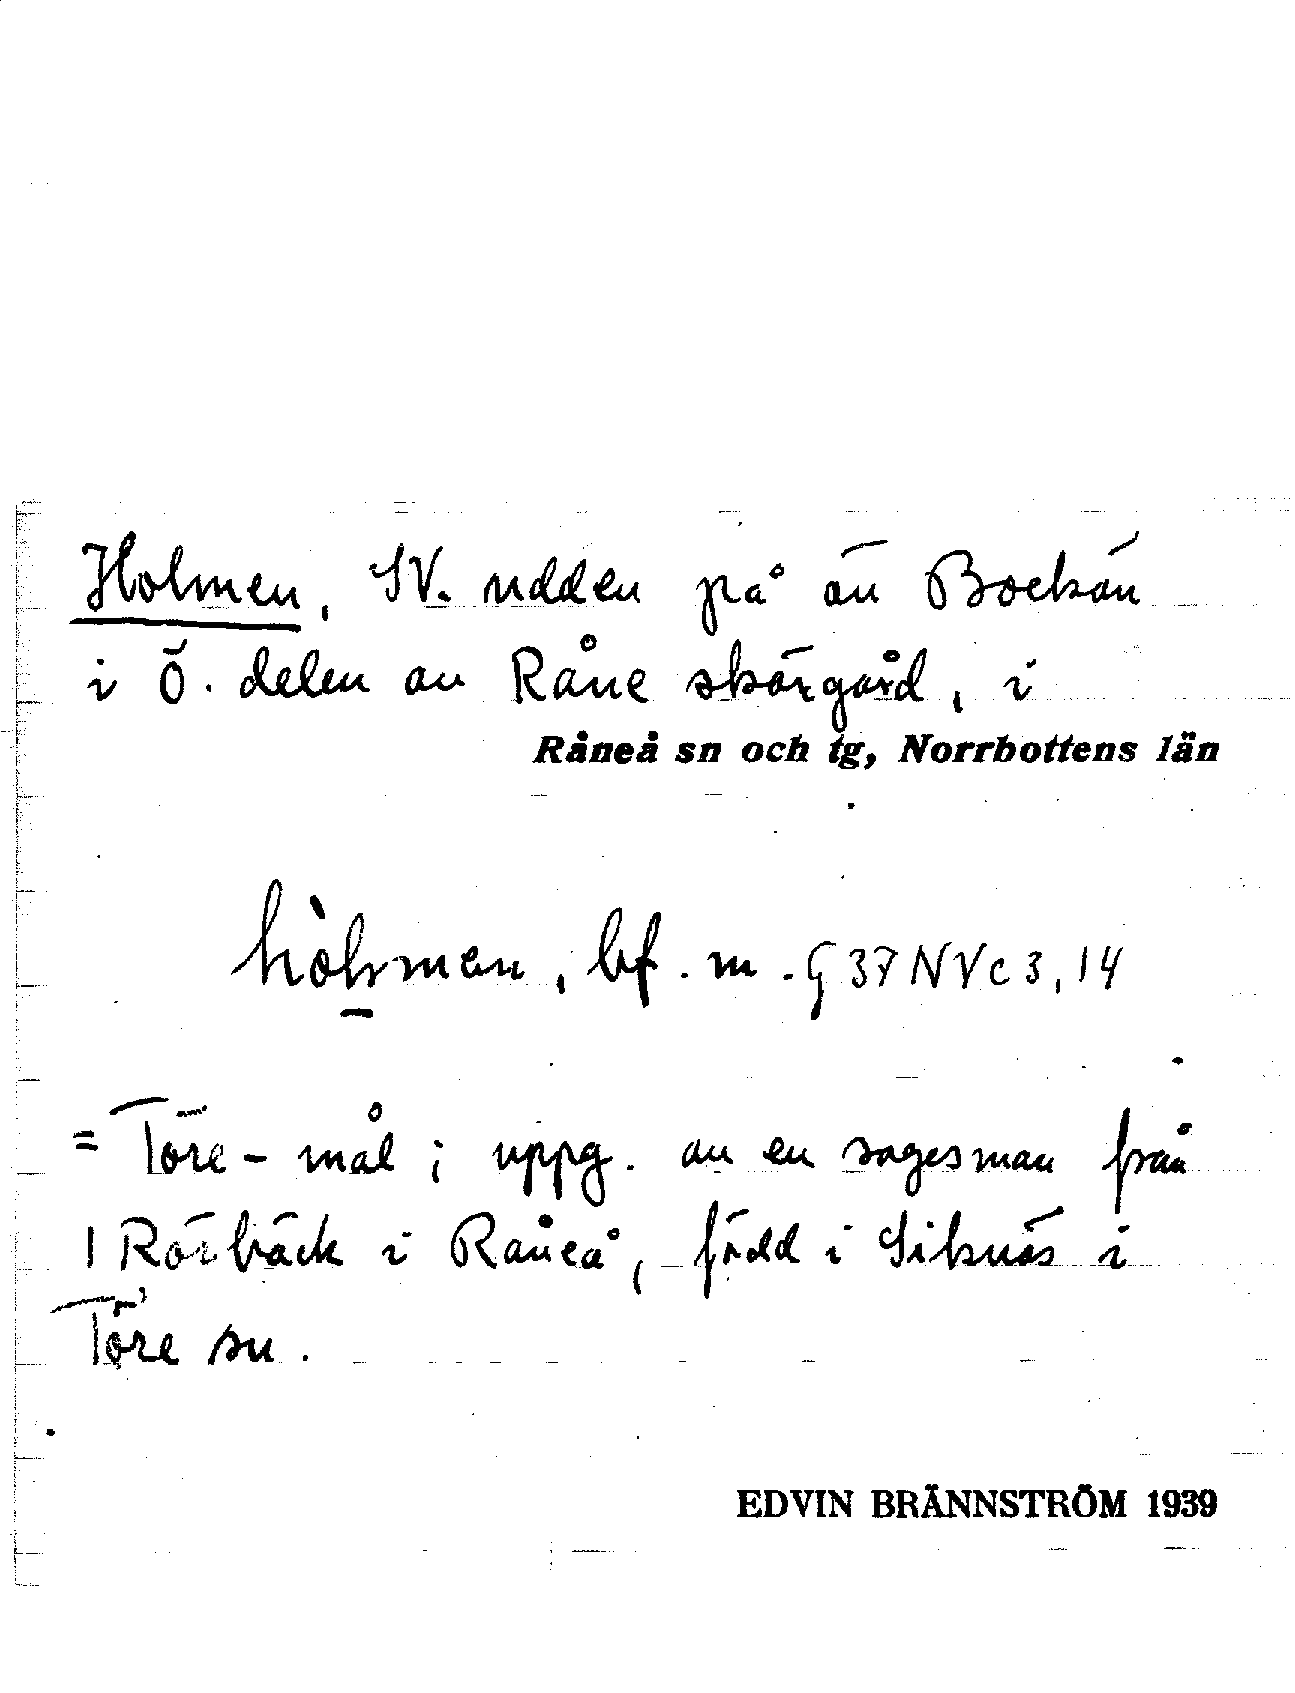 Holmen, SV. udden på ön Bockön
i Ö. delen av Råne skärgård, i
Råneå sn och tg, Norrbottens län
bf. m. G 37 NV c 3, 14
= Töre-mål; uppg. av en sagesman från
Rörbäck i Råneå, född i Siknäs i
Töre sn.
EDVIN BRÄNNSTRÖM 1939